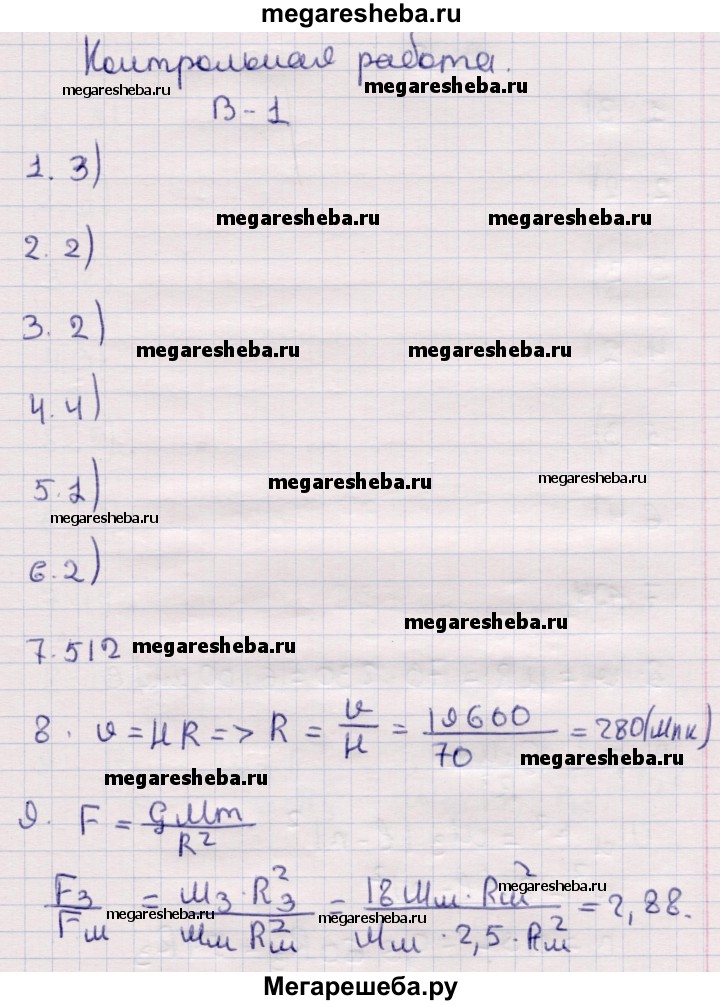 megaresheba.ru
Контрольная работа.
megaresheba.ru megaresheba.ru
В-1
1. 3)
megaresheba.ru megaresheba.ru
2. 2)
3. 2)
megaresheba.ru megaresheba.ru
4. 4)
5. 1)
megaresheba.ru megaresheba.ru
megaresheba.ru
6. 2)
megaresheba.ru
7. 512 megaresheba.ru
8. υ = HR => R = υ/H = 19600/70 = 280(Мпк)
megaresheba.ru
megaresheba.ru
9. F = GMm/R²
Fз/Fм = Mз · Rз²/Mм Rм² = 18 Mм · Rм²/Mм · 2,5 · Rм² = 2,88.
megaresheba.ru
megaresheba.ru megaresheba.ru megaresheba.ru
Мегарешеба.ру